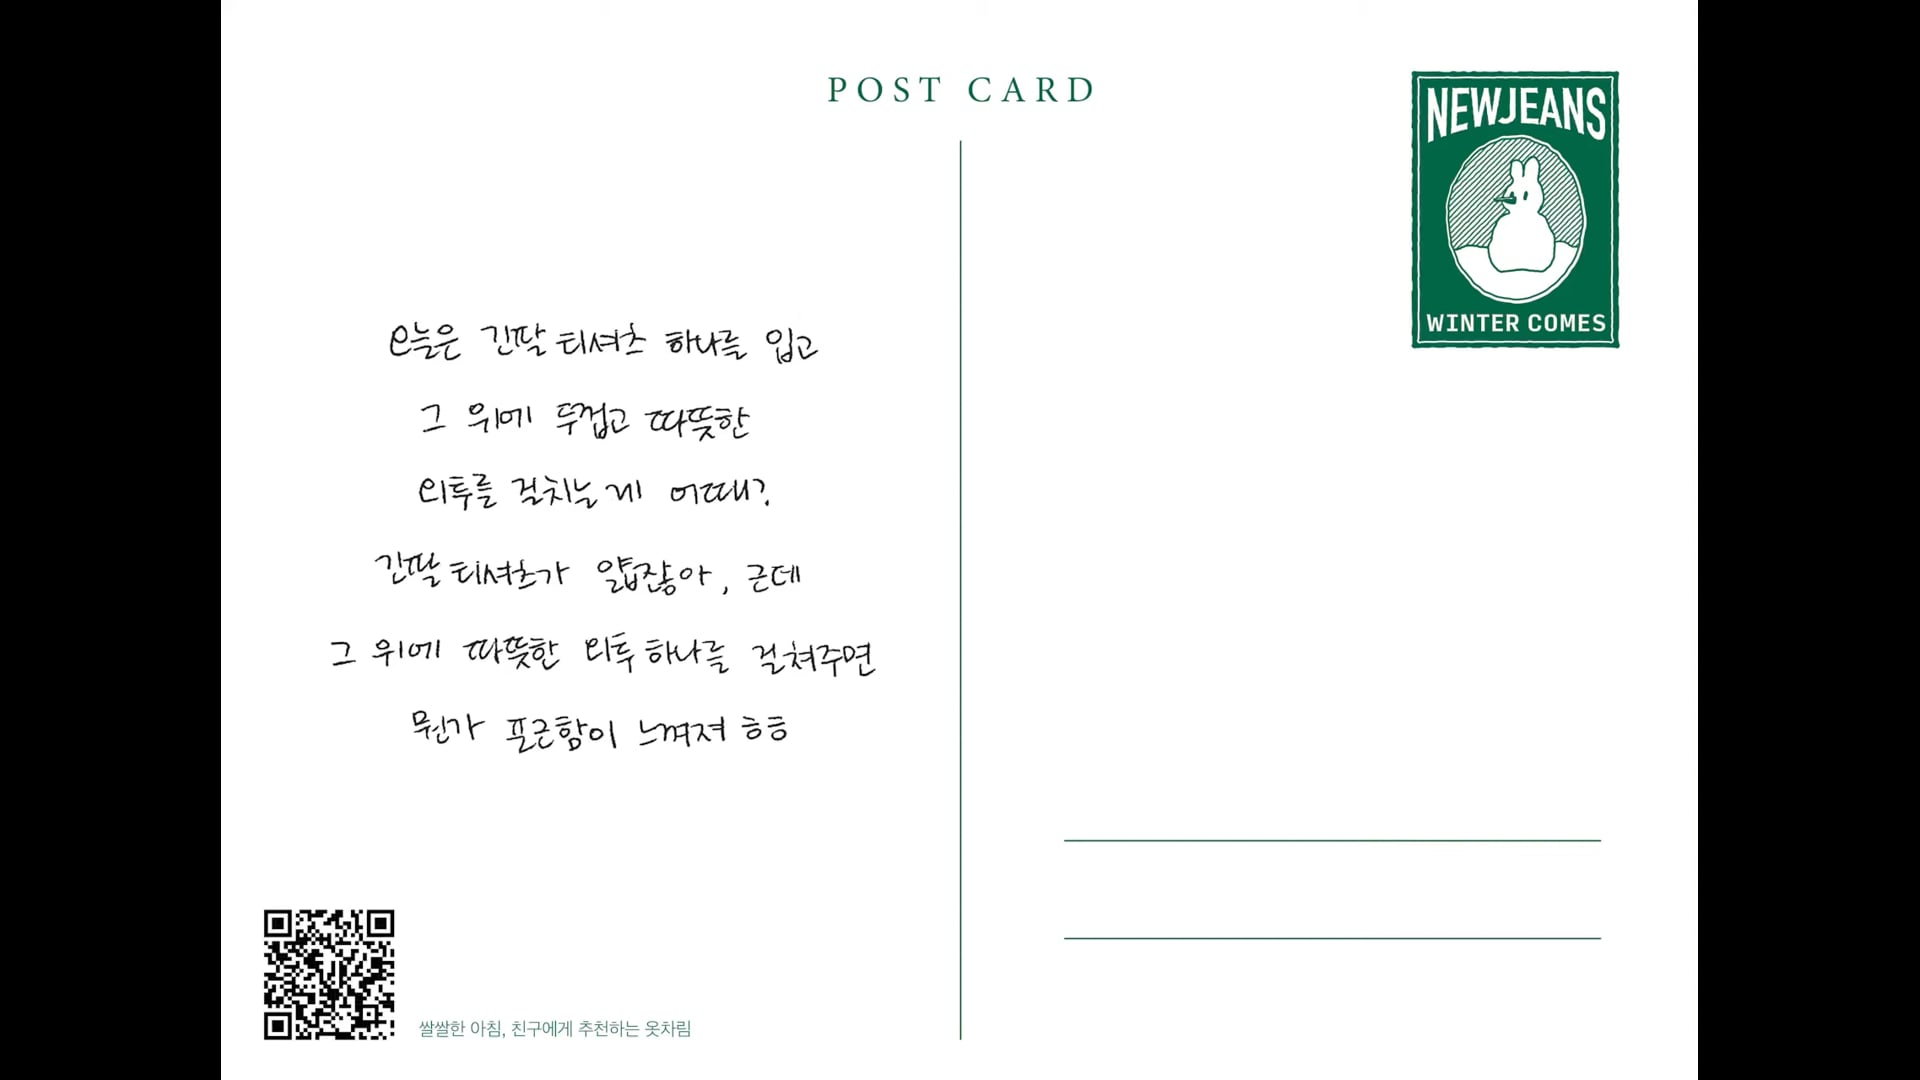 POST CARD
NEWJEANS
WINTER COMES
오늘은 긴팔 티셔츠 하나를 입고
그 위에 두껍고 따뜻한
외투를 걸치는 게 어때?
긴팔 티셔츠가 얇잖아, 근데
그 위에 따뜻한 외투 하나를 걸쳐주면
뭔가 포근함이 느껴져 흐흐
쌀쌀한 아침, 친구에게 추천하는 옷차림